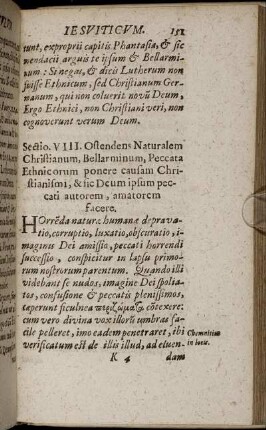 IESVITICVM. 151
runt, ex proprii capitis Phantasia, & sic
mendacii arguis te ipsum & Bellarmi-
num: Si negas, & dicis Lutherum non
fuisse Ethnicum, sed Christianum Ger-
manum, qui non coluerit novũ Deum,
Ergo Ethnici, non Christiani veri, non
cognoverunt verum Deum.
Sectio. VIII. Ostendens Naturalem
Christianum, Bellarminum, Peccata
Ethnicorum ponere causam Chri-
stianismi, & sic Deum ipsum pec-
cati autorem, amatorem
facere.
HOrrẽda naturæ humanæ deprava-
tio, corruptio, luxatio, obscuratio, i-
maginis Dei amissio, peccati horrendi
successio, conspicitur in lapsu primo-
rum nostrorum parentum. Quando illi
videbant se nudos, imagine Dei spolia-
tos, confusione & peccatis plenissimos,
cœperunt ficulnea περιζώματα cõtexere:
cum vero divina vox illorũ umbras fa-
cile pelleret, imo eadem penetraret, ibi
verificatum est de illis illud, ad eluen-
Chemnitius
in locis.
K 4 dam